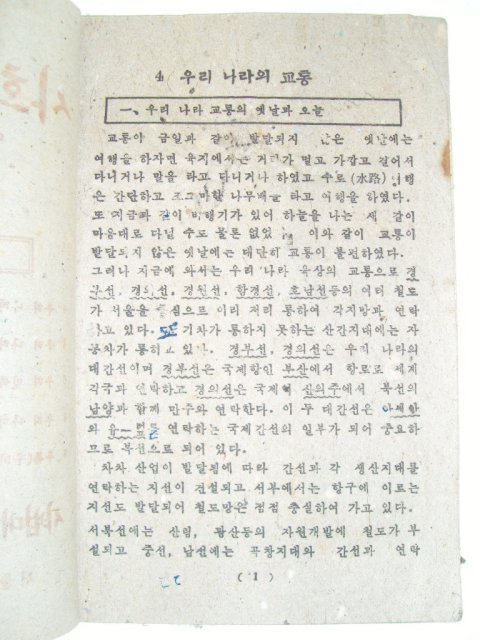 4 우리 나라의 교통
一、 우리 나라 교통의 옛날과 오늘
교통이 금일과 같이 발달되지 않은 옛날에는
여행을 하자면 육지에서는 거리가 멀고 가깝고 걸어서
다니거나 말을 타고 다니거나 하였고 수로(水路)여행
은 간단하고 조그마한 나무배를 타고 여행을 하였다.
또 지금과 같이 비행기가 있어 하늘을 나는 새 같이
마음대로 다닐 수도 물론 없었 이와 같이 교통이
발달되지 않은 옛날에는 대단히 교통이 불편하였다.
그러나 지금에 와서는 우리 나라 육상의 교통으로 경
부선, 경의선, 경원선, 함경선, 호남선등의 여러 철도
가 서울을 중심으로 이리 저리 통하여 각지방과 연락
하고 있다. 또 기차가 통하지 못하는 산간지대에는 자
동차가 통하고 있다. 경부선, 경의선은 우리 나라의
대간선이며 경부선은 국제항인 부산에서 항로로 세계
각국과 연락하고 경의선은 국제 신의주에서 북선의
남양과 함께 만주와 연락한다. 이 두 대간선은 아세아
와 연락하는 국제간선의 일부가 되어 중요하
므로 복선으로 되어 있다.
차차 산업이 발달됨에 따라 간선과 각 생산지대를
연락하는 지선이 건설되고 서부에서는 항구에 이르는
지선도 발달되어 철도망은 점점 충실하여 가고 있다.
서북선에는 산림, 광산등의 자원개발에 철도가 부
설되고 중선, 남선에는 곡창지대와 간선과 연락
( 1 )